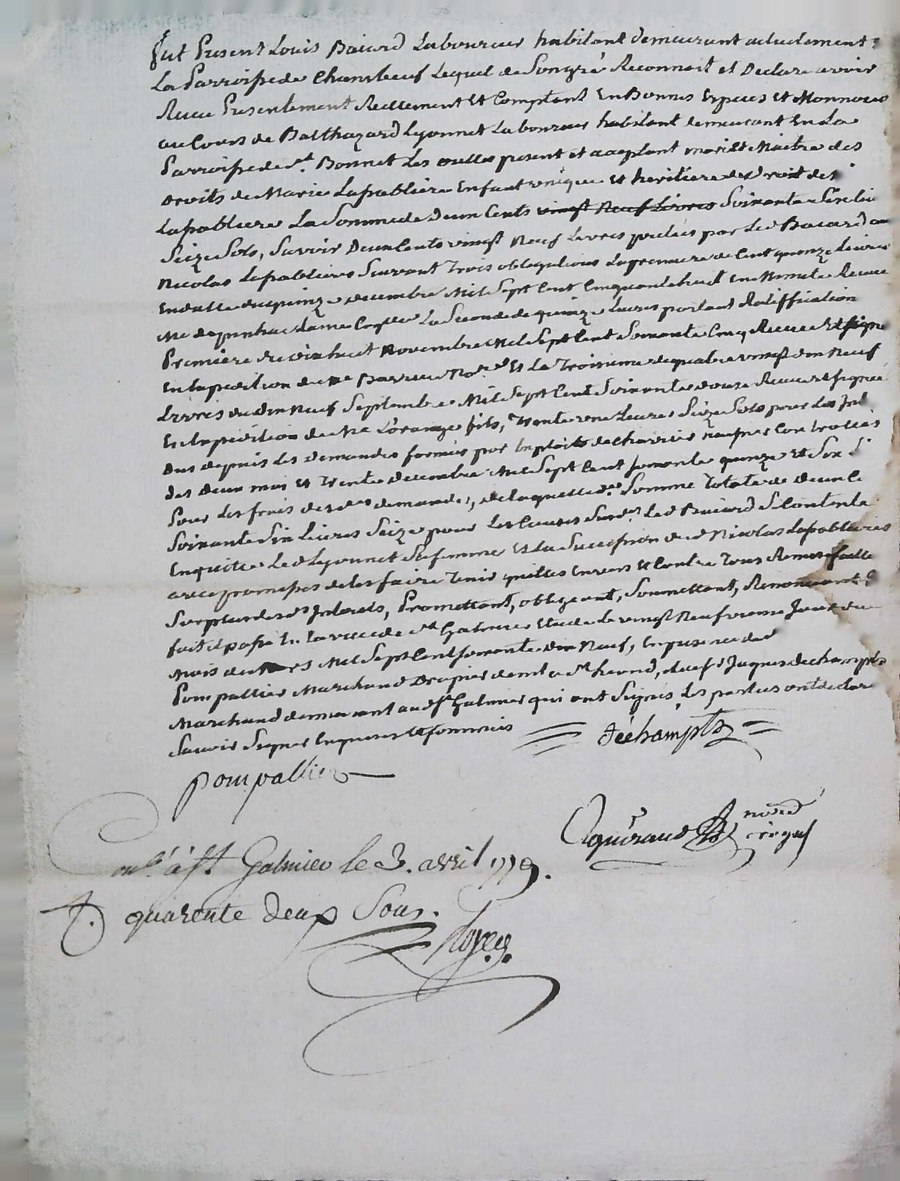 fut Present Louis Baiard Laboureur habitant demeurant actuelement
La Parroisse de Chambeuf Lequel de Son gré Reconnoit et Declare avoir
Receu Presentement Reellement Et Comptant En Bonnes Especes et Monnoies
au Cours de Balthazard Lyonnet Laboureur habitant demeurant En La
Parroisse de St. Bonnet Les oulles present et acceptant mari Et Maitre des
droits de Marie Lapabliere Enfant unique et heritiere de Droit de
Lapabliere La Somme de Deux Cents vingt Neuf Livres Soixante Six Liv
Seize Sols, Savoir Deux Cents vingt Neuf Livres pretées par Led Baiard au
Nicolas Lapabliere Suivant Trois obligations La premiere de Cent quinze Livres
En datte du quinze decembre Mil Sept Cent Cinquante huit En Minute Receue
Me La Seconde de quinze Livres portant Ratiffication
Premiere du dix huit Novembre Mil Sept Cent Soixante Cinq Receue Et Signé
En Expedition de Me Barrieu Not.e Et La Troisieme de quatre vingt dix Neuf
Livres du dix Neuf Septembre Mil Sept Cent Soixante douze Receue et Signée
En Expedition de Me L'orange fils, Trente une Livres Seize Sols pour Les Int
dus depuis Les demandes formées par Exploits de Charrier huissier Controllés
des Deux mai Et Trente decembre Mil Sept Cent Soixante quinze Et Six L
Pour Les frais desdes demandes, de laquelle de Somme Totale de deux C
Soixante Six Livres Seize pour Les Causes Susd. Led Baiard Se Contente
En quitte Led Lyonnet Sa femme Et La Succession dud Nicolas Lapabliere
avec promesses de Les faire Tenir quittes Envers Et Contre Tous Remise faitte
Surplus des Interets, Promettant, obligeant, Soumettant, Renonceant &
fait Et passé En La ville de St Galmier Etude Le vingt Neuvieme Jour du
Mois de Mars Mil Sept Cent Soixante dix Neuf, En presence de
Pompallier Marchand Drapier demt a St heand, de Sr Jaques Dechampts
Marchand demeurant aud St Galmier qui ont Signés, Les parties ont declaré
Savoir Signer Enquises Et Sommées
Déchampts
pompallier
Not.
St Galmier le 3. avril 1779.
quarente deux Sous.